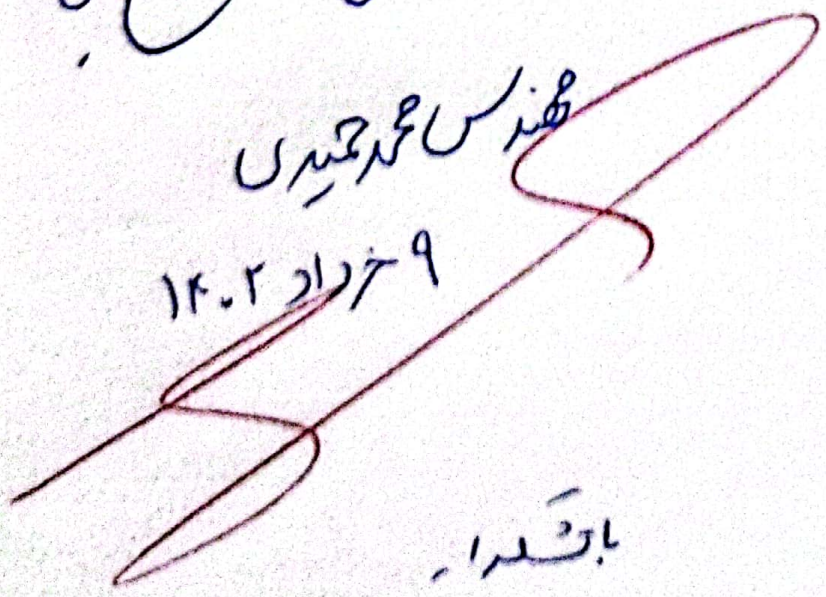 مهندس محمد حمیدی
۹ خرداد ۱۴۰۲
با تشکر